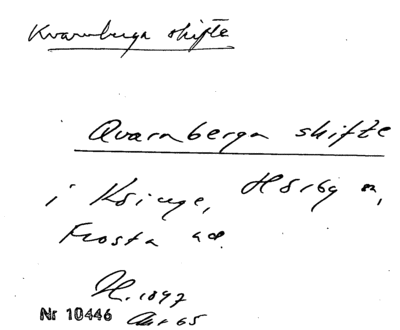 Kvarnberga skifte
Qvarnberga skifte
i Köinge, Hörby sn,
Frosta hd.
H. 1897
Nr 10446